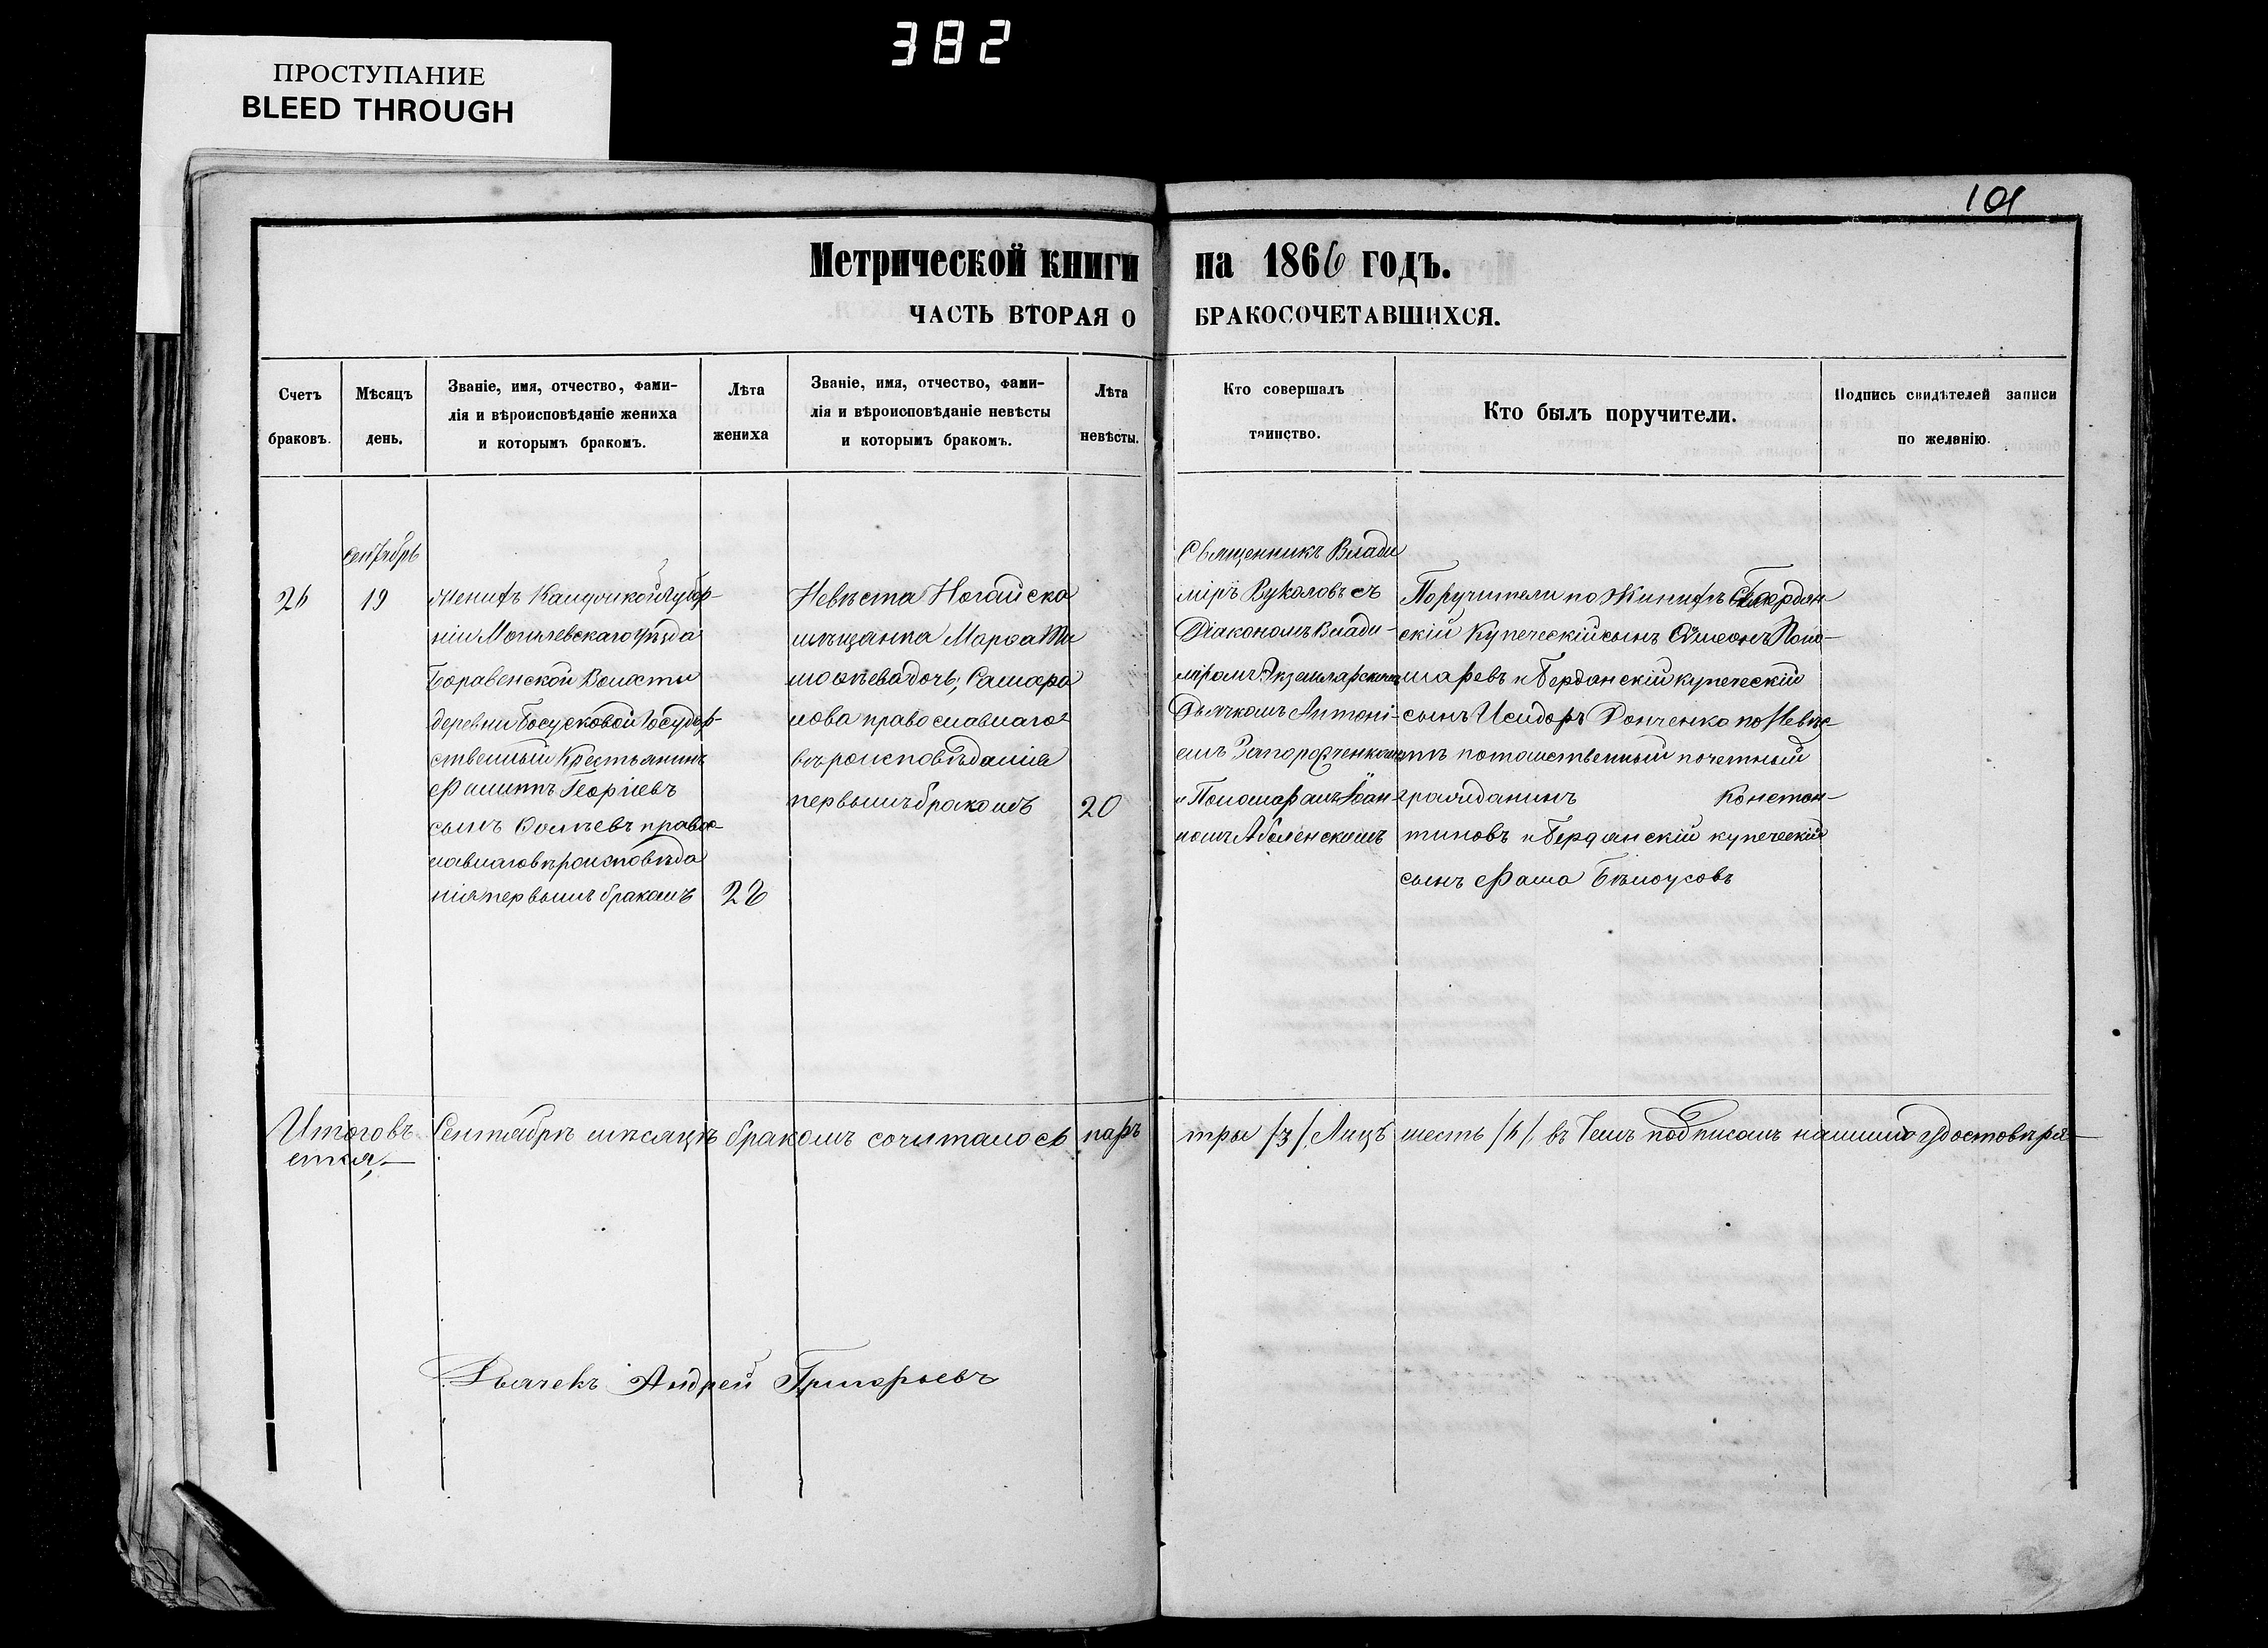 382
ПРОСТУПАНИЕ
BLEED THROUGH
101
Метрической книги на 1866 годъ.
ЧАСТЬ ВТОРАЯ О БРАКОСОЧЕТАВШИХСЯ.
Счетъ
браковъ.
Мѣсяцъ
день.
Званіе, имя, отчество, фами-
лія и вѣроисповѣданіе жениха
и которымъ бракомъ.
Лѣта
жениха
Званіе, имя, отчество, фами-
лія и вѣроисповѣданіе невѣсты
и которымъ бракомъ.
Лѣта
невѣсты.
Кто совершалъ
таинство.
Кто былъ поручители.
Подпись свидѣтелей записи
по желанію.
26
Сентябрь
19
Женихъ Калужской Губер-
ніи Мо Уѣзда
Волости
деревни Государ-
ственный Крестьянинъ
Филиппъ Георгіевъ
сынъ правос-
лавнаго вѣроисповѣда
нія первымъ бракомъ
26
Невѣста Ногайска
мѣщанка Марѳа Ти
моѳѣева дочь, Самара
нова православнаго
вѣроисповѣданія
первымъ бракомъ
20
Священникъ Влади
міръ Рукаловъ съ
Діакономъ Влади-
міромъ Экземлярскимъ
Дьячкомъ Антоні-
емъ Запорожченкомъ
и Пономаремъ Іоан-
номъ Аболенскимъ
Поручители по Жинихѣ Бердян
скій Купеческій сынъ Симеонъ Поно-
маревъ и Бердянскій купеческій
сынъ Исидоръ Донченко по Невѣс
тѣ потомственный почетный
гражданинъ Констан-
тиновъ и Бердянскій купеческій
сынъ Фома Бѣлоусовъ
Итого въ Сентябрѣ мѣсяцѣ бракомъ сочиталось паръ три /3/ Лицъ шесть /6/, въ Чемъ подписомъ нашимъ удостовѣря-
ется,—
Дьячекъ Андрей Григорьевъ